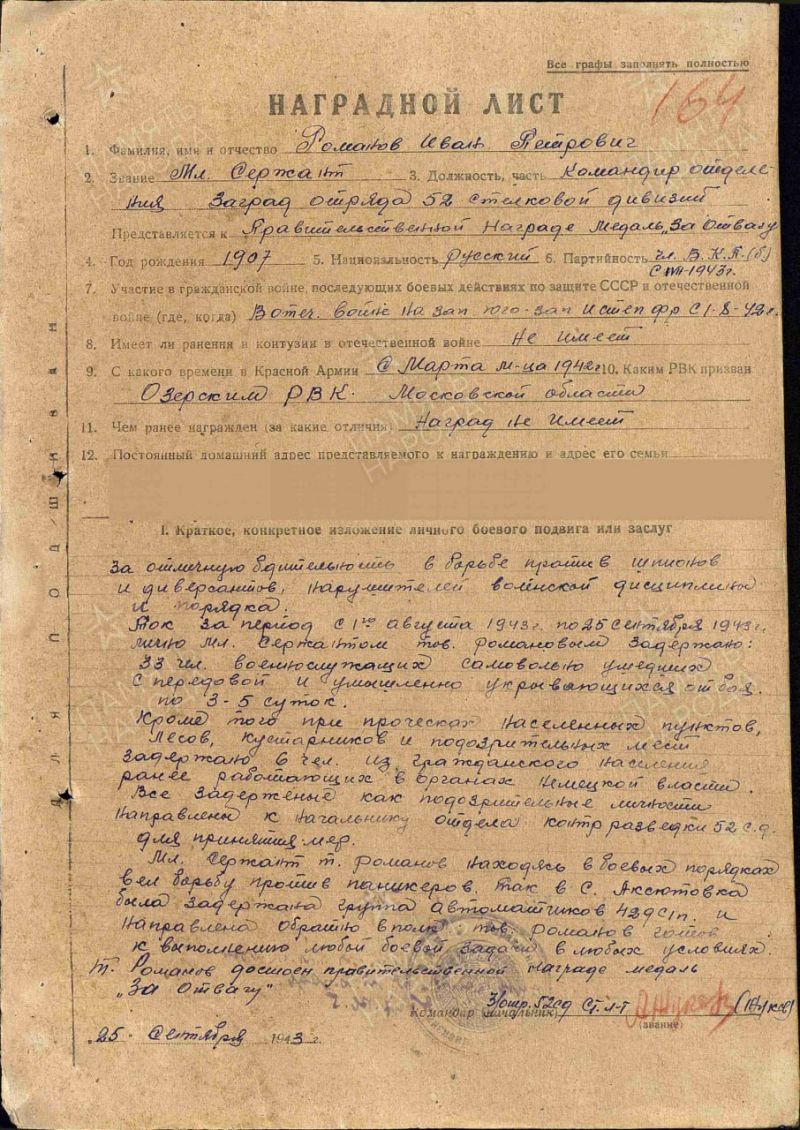 Все графы заполнять полностью
164
НАГРАДНОЙ ЛИСТ
1. Фамилия, имя и отчество Романов Иван Петрович
2. Звание Мл. Сержант 3. Должность, часть Командир отделе-
ния Заград отряда 52 стелковой дивизии
Представляется к Правительственной Награде Медаль „За Отвагу
4. Год рождения 1907 5. Национальность Русский 6. Партийность чл. В.К.П.(б)
с VIII-1943г.
7. Участие в гражданской войне, последующих боевых действиях по защите СССР и отечественной
войне (где, когда) В отеч. войне на зап. юго-зап и степ фр с 1-8-42г.
8. Имеет ли ранения и контузии в отечественной войне Не имеет
9. С какого времени в Красной Армии с Марта м-ца 1942г 10. Каким РВК призван
Озерским РВК. Московской области
11. Чем ранее награжден (за какие отличия) Наград не имеет
12. Постоянный домашний адрес представляемого к награждению и адрес его семьи
I. Краткое, конкретное изложение личного боевого подвига или заслуг
За отличную бдительность в борьбе против шпионов
и диверсантов, нарушителей воинской дисциплины
и порядка.
Так за период с 1го августа 1943г. по 25 сентября 1943г.
лично Мл. Сержантом тов. Романовым задержано:
33 чел. военнослужащих самовольно ушедших
с передовой и умышленно укрывающихся от боя.
по 3-5 суток.
Кроме того при проческах населенных пунктов,
лесов, кустарников и подозрительных мест
задержано 6 чел. из гражданского населения
ранее работающих в органах немецкой власти.
Все задерженые как подозрительные личности
направлены к начальнику отдела контрразведки 52 с.д.
для принятия мер.
Мл. Сержант т. Романов находясь в боевых порядках
вел борьбу против паникеров. так в с. Аксютовка
была задержана группа автоматчиков 429сп. и
направлена обратно в полк тов. Романов готов
к выполнению любой боевой задачи в любых условиях.
т. Романов достоен правительственной награде медаль
„За Отвагу"
З/отр. 52сд Ст. л-т
Командир (начальник)
(звание)
„25" Сентября 1943 г.
для подшивки
ПАМЯТЬ НАРОДА